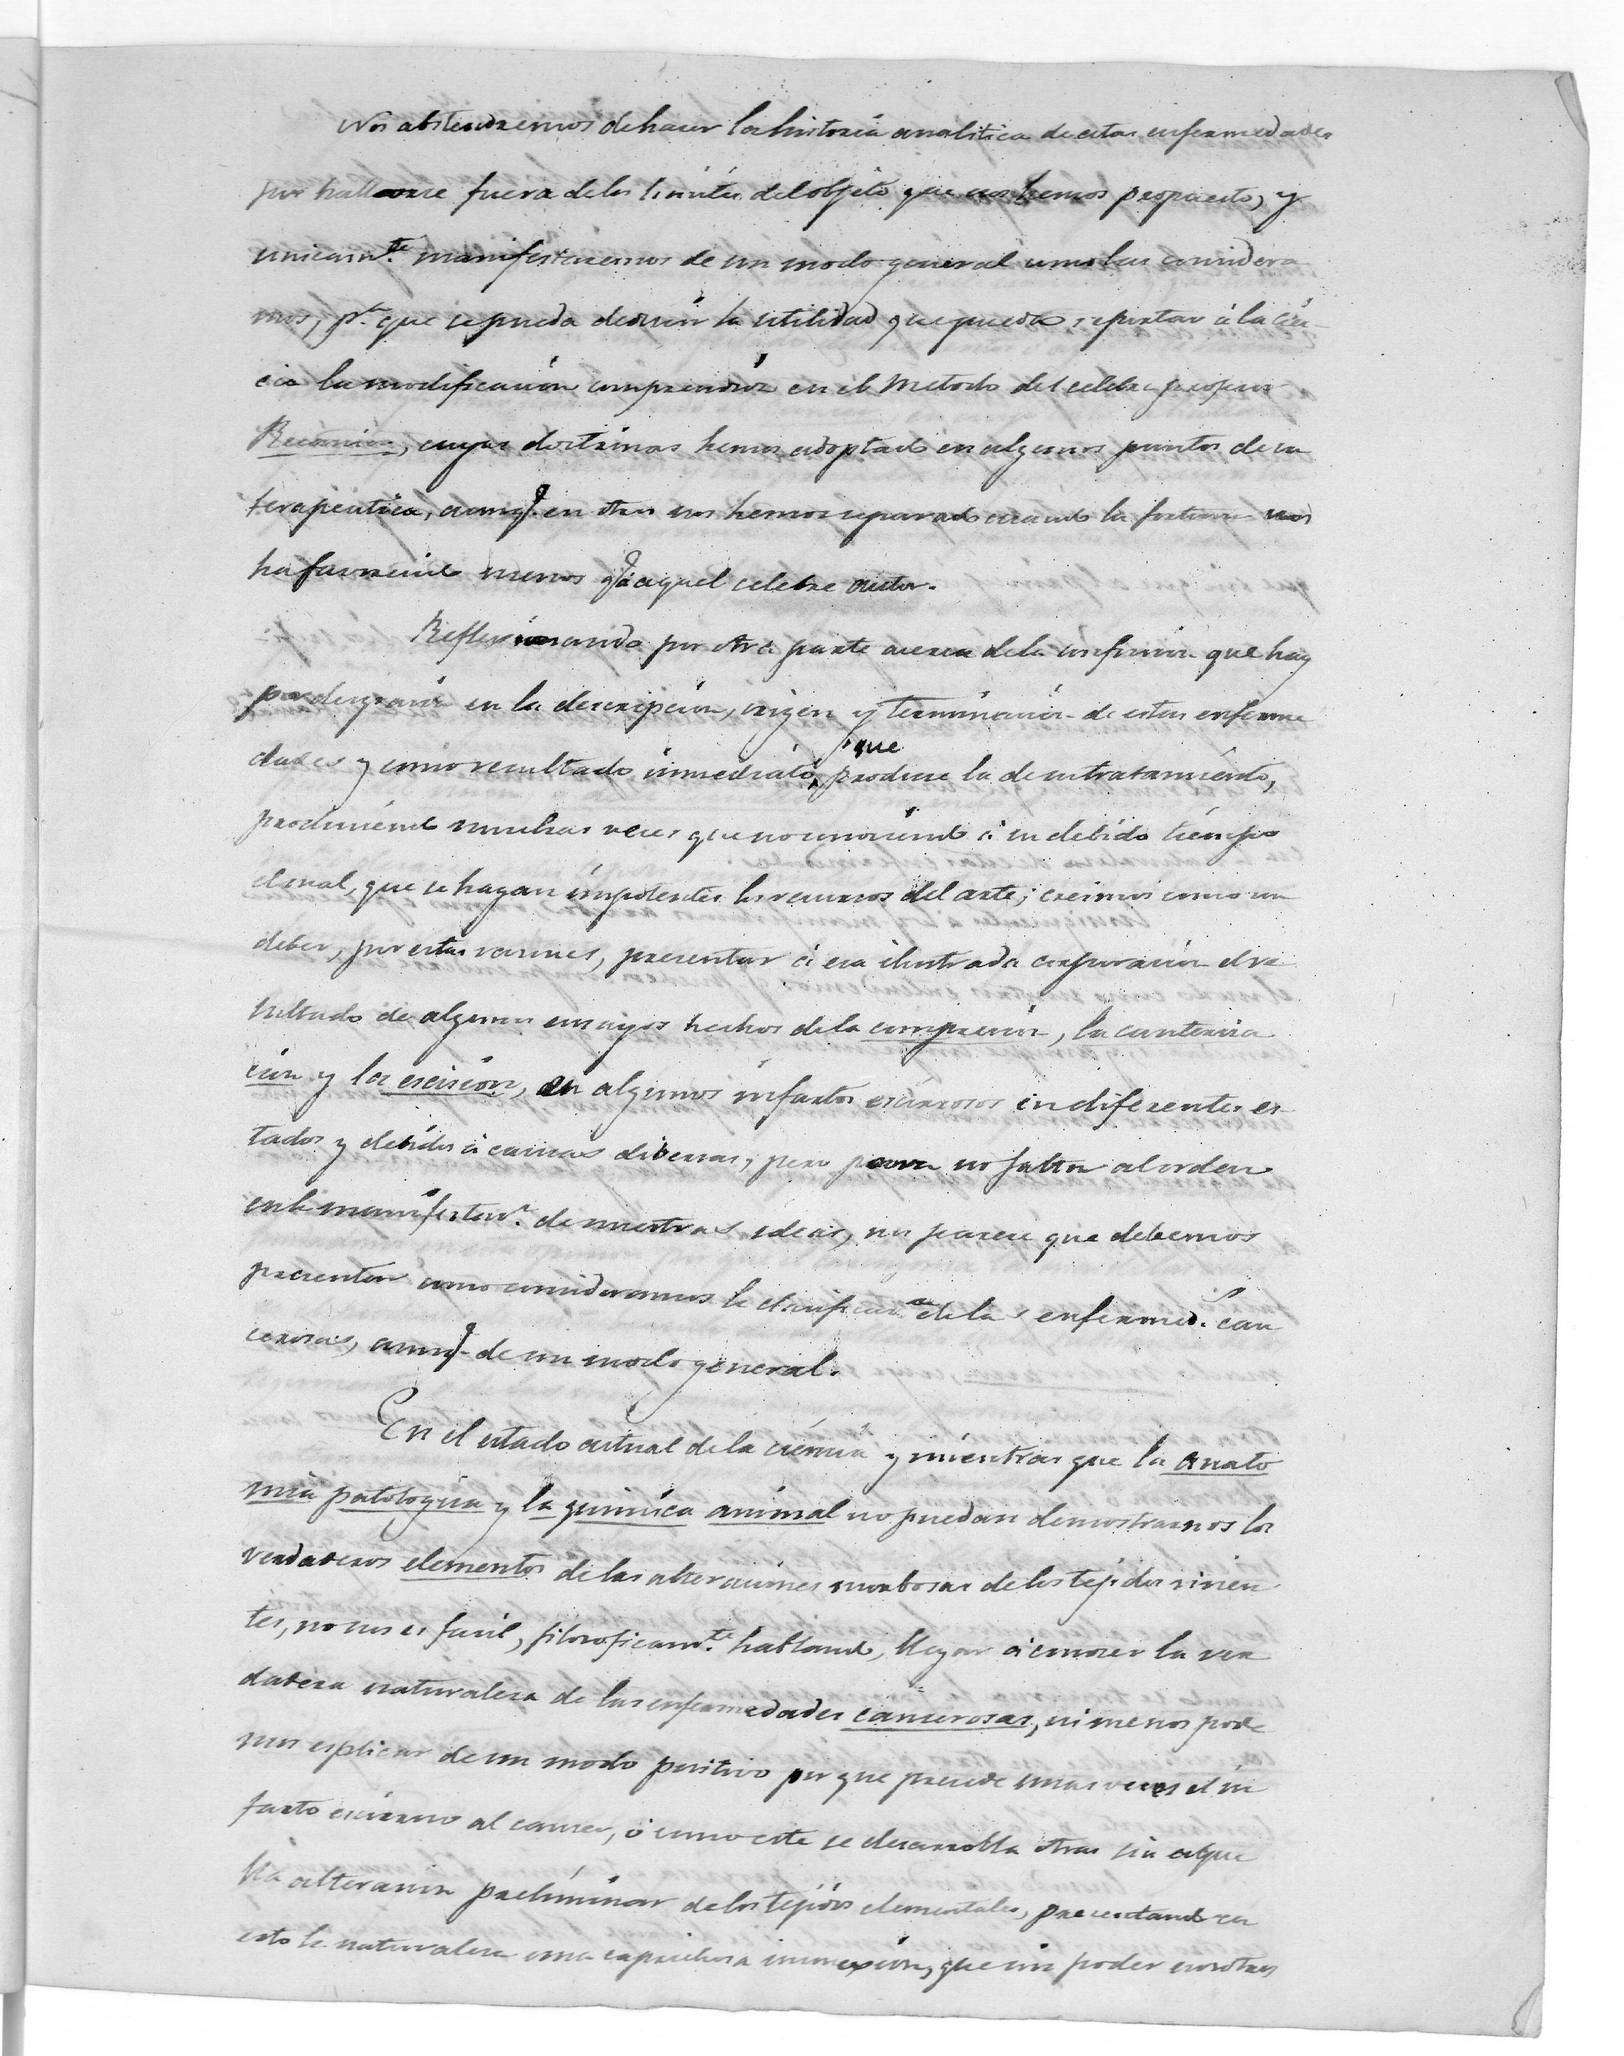 Nos abstendremos de hacer la historia analitica de estas enfermedades
por hallarse fuera de los limites del objeto que nos hemos propuesto, y
unicam.te manifestaremos de un modo general como las considera
mos, p.a que se pueda deducir la utilidad que pueda reportar á la cien-
cia la modificacion comprendida en el Metodo del celebre profesor
Recamier, cuyas doctrinas hemos adoptado en algunos puntos de su
terapeutica, aunq.e en otros nos hemos separado cuando la fortuna nos
ha favorecido menos q.e á aquel celebre autor.
Reflexionando por otra parte acerca de la confusion que hay
por desgracia en la descripcion, origen y terminacion de estas enferme
dades y como resultado inmediato que produce la de su tratamiento,
produciendo muchas veces que no conociendo á su debido tiempo
el mal, que se hagan impotentes los recursos del arte; creimos como un
deber, por estas razones, presentar á esa ilustrada corporacion el re
sultado de algunos ensayos hechos de la compresion, la cauteriza
cion y la escision, en algunos infartos escirrosos en diferentes es-
tados y debidos á causas diversas; pero para no faltar al orden
en la manifestac.n de nuestras ideas, nos parece que debemos
presentar como consideramos la clasificac.on de las enfermed.s can
cerosas, aunq.e de un modo general.
En el estado actual de la ciencia y mientras que la anato
mia patologica y la quimica animal no puedan demostrarnos los
verdaderos elementos de las alteraciones morbosas de los tejidos vivien
tes, no nos es facil, filosoficam.te hablando, llegar á conocer la ver
dadera naturaleza de las enfermedades cancerosas, ni menos pode
mos esplicar de un modo positivo por que precede unas veces el in
farto escirroso al cancer, ó como este se desarrolla otras sin aque
lla alteracion preliminar de los tejidos elementales, presentando en
esto la naturaleza una caprichosa inconexion, que sin poder nosotros